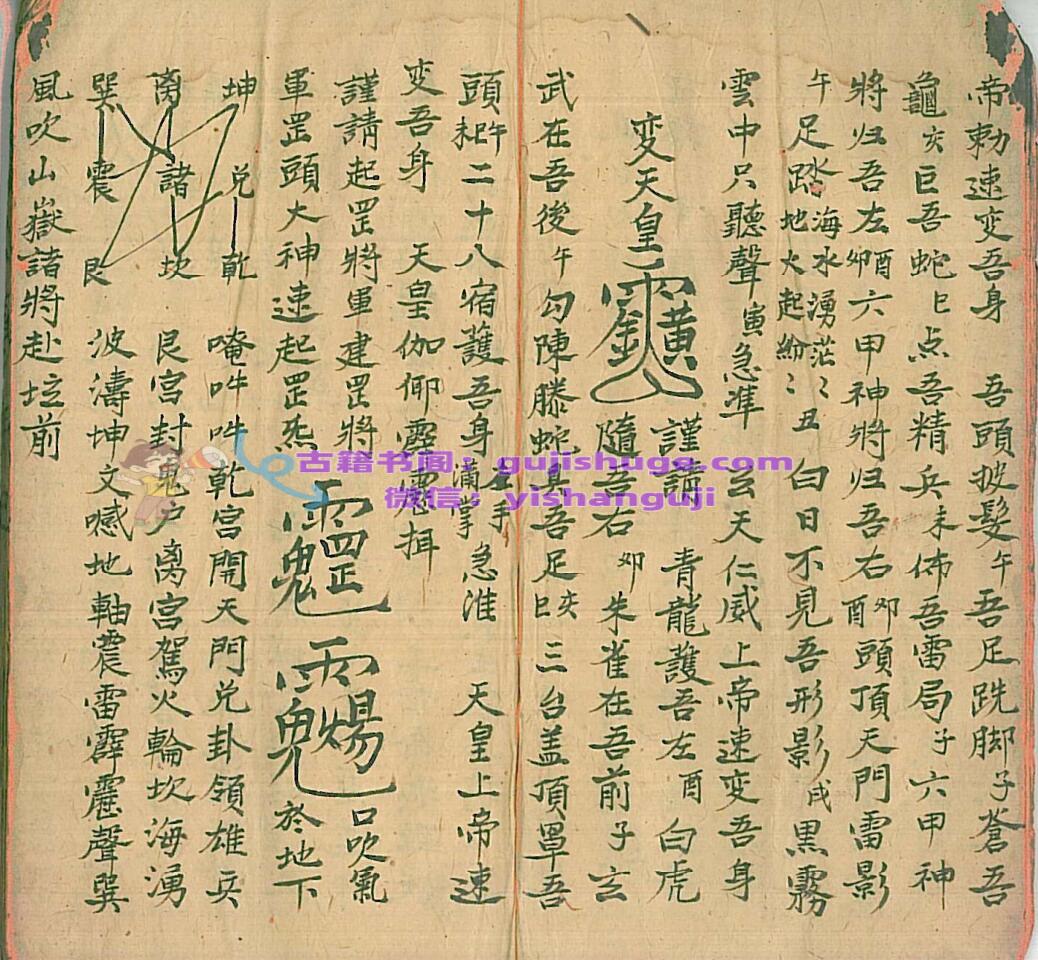 帝勅速变吾身　吾頭披髮午吾足跣脚子蒼吾
龜亥巨吾蛇巳点吾精兵未佈吾雷局子六甲神
将归吾左卯酉六甲神将归吾右酉卯頭頂天門雷影
午足踏海水湧茫〻地火起紛〻丑白日不見吾形影戌黒霧
雲中只聽聲寅急準　玄天仁威上帝速变吾身
变天皇〻　謹請　青龍護吾左酉白虎
隨吾右卯朱雀在吾前子玄
武在吾後午勾陳螣蛇真吾足巳亥三台盖頂罩吾
頭午巳未二十八宿護吾身涌掌左手急准　天皇上帝速
变吾身　天皇伽㑘霹靂揖
謹請起罡将軍建罡将　口吹氣
軍罡頭大神速起罡炁　於地下
坤　兌　乾　唵吽吽乾宫開天門兌卦領雄兵
离　諸　坎　艮宫封鬼户离宫駕火輪坎海湧
巽　震　艮　波濤坤文憾地軸震雷霹靂聲巽
風吹山嶽諸将赴坛前
古籍书阁：gujishuge.com
微信：yishanguji